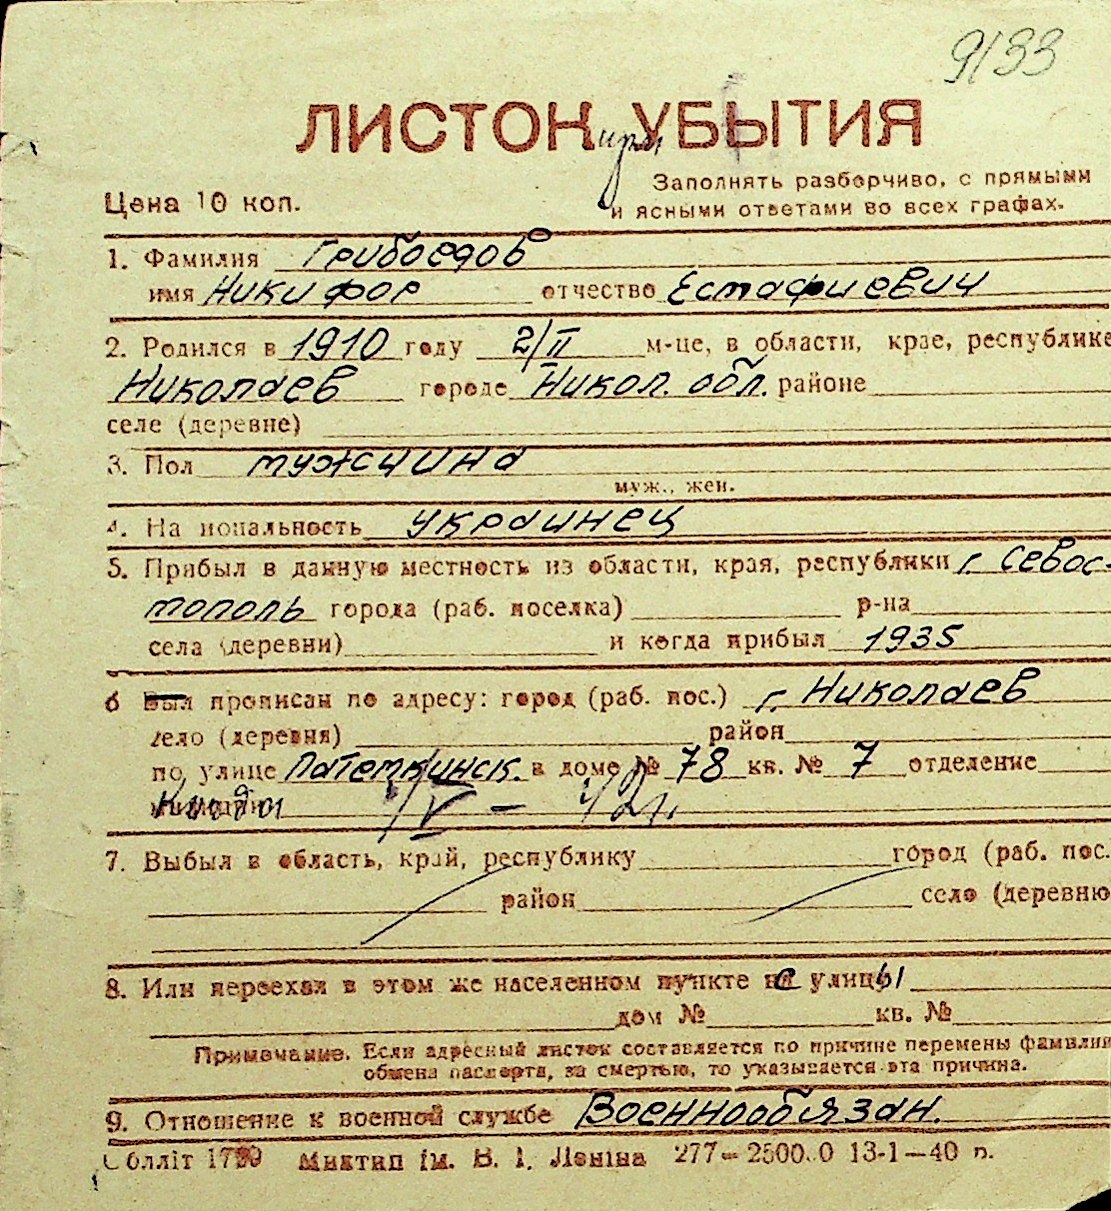 9133
ЛИСТОК при УБЫТИЯ
Заполнять разборчиво, с прямыми
Цена 10 коп.
и ясными ответами во всех графах.
1. Фамилия Грибоедов
имя Никифор отчество Естафиевич
2. Родился в 1910 году 2/II м-це, в области, крае, республике
Николаев городе Никол. обл. районе
селе (деревне)
3. Пол мужчина
муж., жен.
4. На иональность украинец
5. Прибыл в данную местность из области, края, республики г. Севос-
тополь города (раб. поселка) р-на
села (деревни) и когда прибыл 1935
6 Был прописан по адресу: город (раб. пос.) г. Николаев
село (деревня) район
по улице Патемкинск. в доме № 78 кв. № 7 отделение
7. Выбыл в область, край, республику город (раб. пос.
район село (деревню
8. Или переехал в этом же населенном пункте с улицы
дом № кв. №
Примечание. Если адресный листок составляется по причине перемены фамилии
обмена паспорта, за смертью, то указывается эта причина.
9. Отношение к военной службе Военнообязан.
Миктип ім. В. І. Леніна 277— 13-1—40 п.